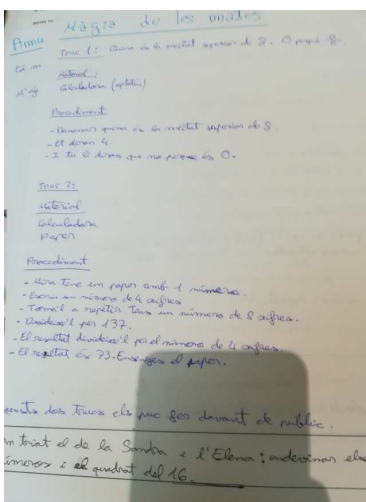 Màgia de les mates
Annu
Truc 1: Quina és la meitat superior de 8. O perquè 8.
Material:
Calculadora (optatiu)
Procediment
- Demanar quina és la meitat superior de 8.
- Et diran 4
- I tu li dius que no perquè és 0.
Truc 2:
Material
Calculadora
Paper
Procediment
- Hora Tenir un paper amb 1 número.
- Escriu un número de 4 xifres
- Torna'l a repetir Tens un número de 8 xifres.
- Divideix'l per 137.
- El resultat divideix'l pel número de 4 xifres.
- El resultat és 73. Ensenyes el paper.
dos trucs els puc fer davant de públic.
triat el de la Sandra i l'Elena: endevinar els
números i el quadrat del 16.